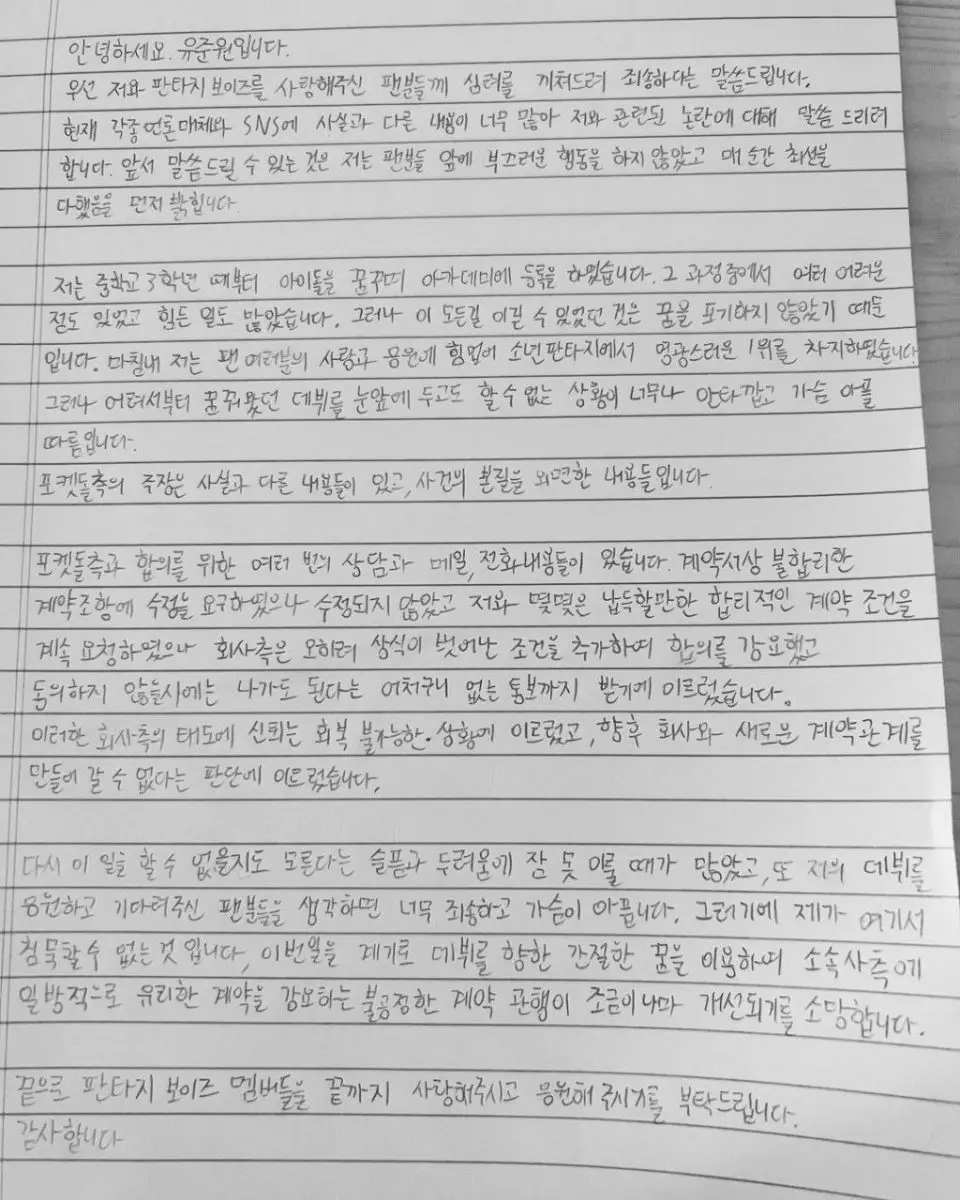 안녕하세요. 유준원입니다.
우선 저와 판타지 보이즈를 사랑해주신 팬분들께 심려를 끼쳐드려 죄송하다는 말씀드립니다.
현재 각종언론매체와 SNS에 사실과 다른 내용이 너무 많아 저와 관련된 논란에 대해 말씀 드리려
합니다. 앞서 말씀드릴 수 있는 것은 저는 팬분들 앞에 부끄러운 행동을 하지 않았고 매 순간 최선을
다했음을 먼저 밝힙니다.
저는 중학교 3학년 때부터 아이돌을 꿈꾸며 아카데미에 등록을 하였습니다. 그 과정중에서 여러 어려운
점도 있었고 힘든 일도 많았습니다. 그러나 이 모든걸 이길 수 있었던 것은 꿈을 포기하지 않았기 때문
입니다. 마침내 저는 팬 여러분의 사랑과 응원에 힘입어 소년판타지에서 영광스러운 1위를 차지하였습니다
그러나 어려서부터 꿈꿔왔던 데뷔를 눈앞에 두고도 할 수 없는 상황이 너무나 안타깝고 가슴 아플
따름입니다.
포켓돌측의 주장은 사실과 다른 내용들이 있고, 사건의 본질을 외면한 내용들입니다.
포켓돌측과 합의를 위한 여러 번의 상담과 메일, 전화내용들이 있습니다. 계약서상 불합리한
계약조항에 수정을 요구하였으나 수정되지 않았고 저와 몇몇은 납득할만한 합리적인 계약 조건을
계속 요청하였으나 회사측은 오히려 상식이 벗어난 조건을 추가하여 합의를 강요했고
동의하지 않을시에는 나가도 된다는 어처구니 없는 통보까지 받기에 이르렀습니다.
이러한 회사측의 태도에 신뢰는 회복 불가능한 상황에 이르렀고, 향후 회사와 새로운 계약관계를
만들어 갈 수 없다는 판단에 이르렀습니다.
다시 이 일을 할 수 없을지도 모른다는 슬픔과 두려움에 잠 못 이룰 때가 많았고, 또 저의 데뷔를
응원하고 기다려주신 팬분들을 생각하면 너무 죄송하고 가슴이 아픕니다. 그러기에 제가 여기서
침묵할 수 없는 것 입니다, 이번일을 계기로 데뷔를 향한 간절한 꿈을 이용하여 소속사측에
일방적으로 유리한 계약을 강요하는 불공정한 계약 관행이 조금이나마 개선되기를 소망합니다.
끝으로 판타지 보이즈 멤버들을 끝까지 사랑해주시고 응원해 주시기를 부탁드립니다.
감사합니다